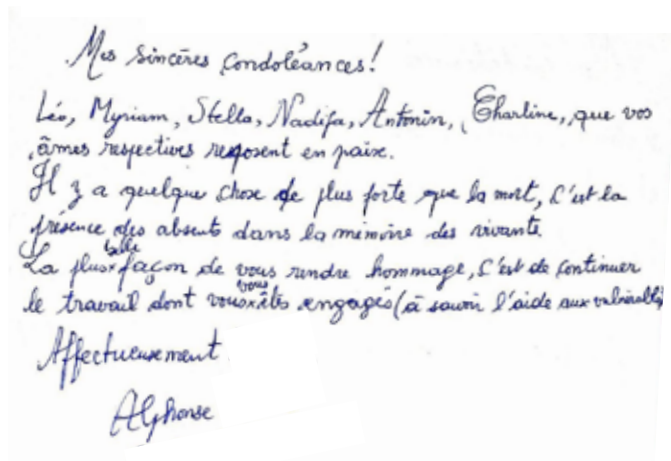 Mes sincères condoléances!
Léo, Myriam, Stella, Nadifa, Antonin, Charline, que vos
âmes respectives reposent en paix.
Il y a quelque chose de plus forte que la mort, c'est la
présence des absents dans la mémoire des vivants.
La plus belle façon de vous rendre hommage, c'est de continuer
le travail dont vous vous êtes engagés (à savoir l'aide aux vulnérables
Affectueusement
Alphonse